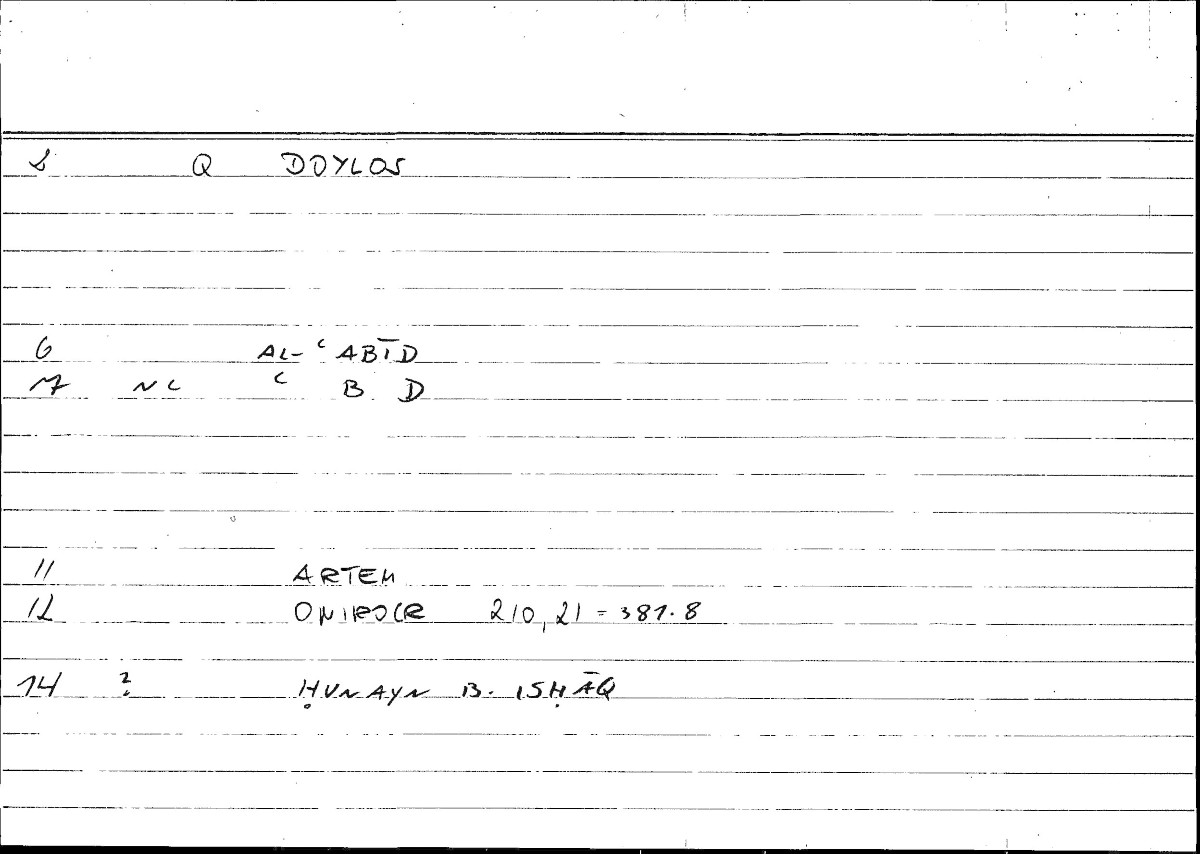 1 Q DOYLOS
6 AL-ʿABĪD
7 NC ʿ B D
11 ARTEM
12 ONIROCR 210,21 = 381.8
14 ? ḤUNAYN B. ISḤĀQ